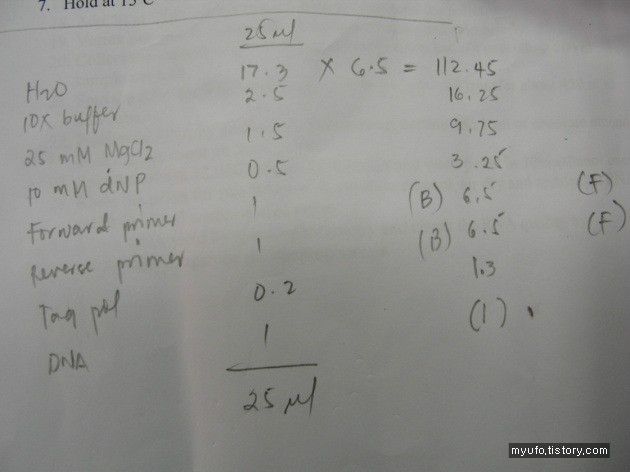 7. Hold at 15°C
25 µl
H2O 17.3 × 6.5 = 112.45
10X buffer 2.5 16.25
25 mM MgCl2 1.5 9.75
10 mM dNP 0.5 3.25
Forward primer 1 (B) 6.5 (F)
Reverse primer 1 (B) 6.5 (F)
Taq pol 0.2 1.3
DNA 1 (1)
25 µl
myufo.tistory.com